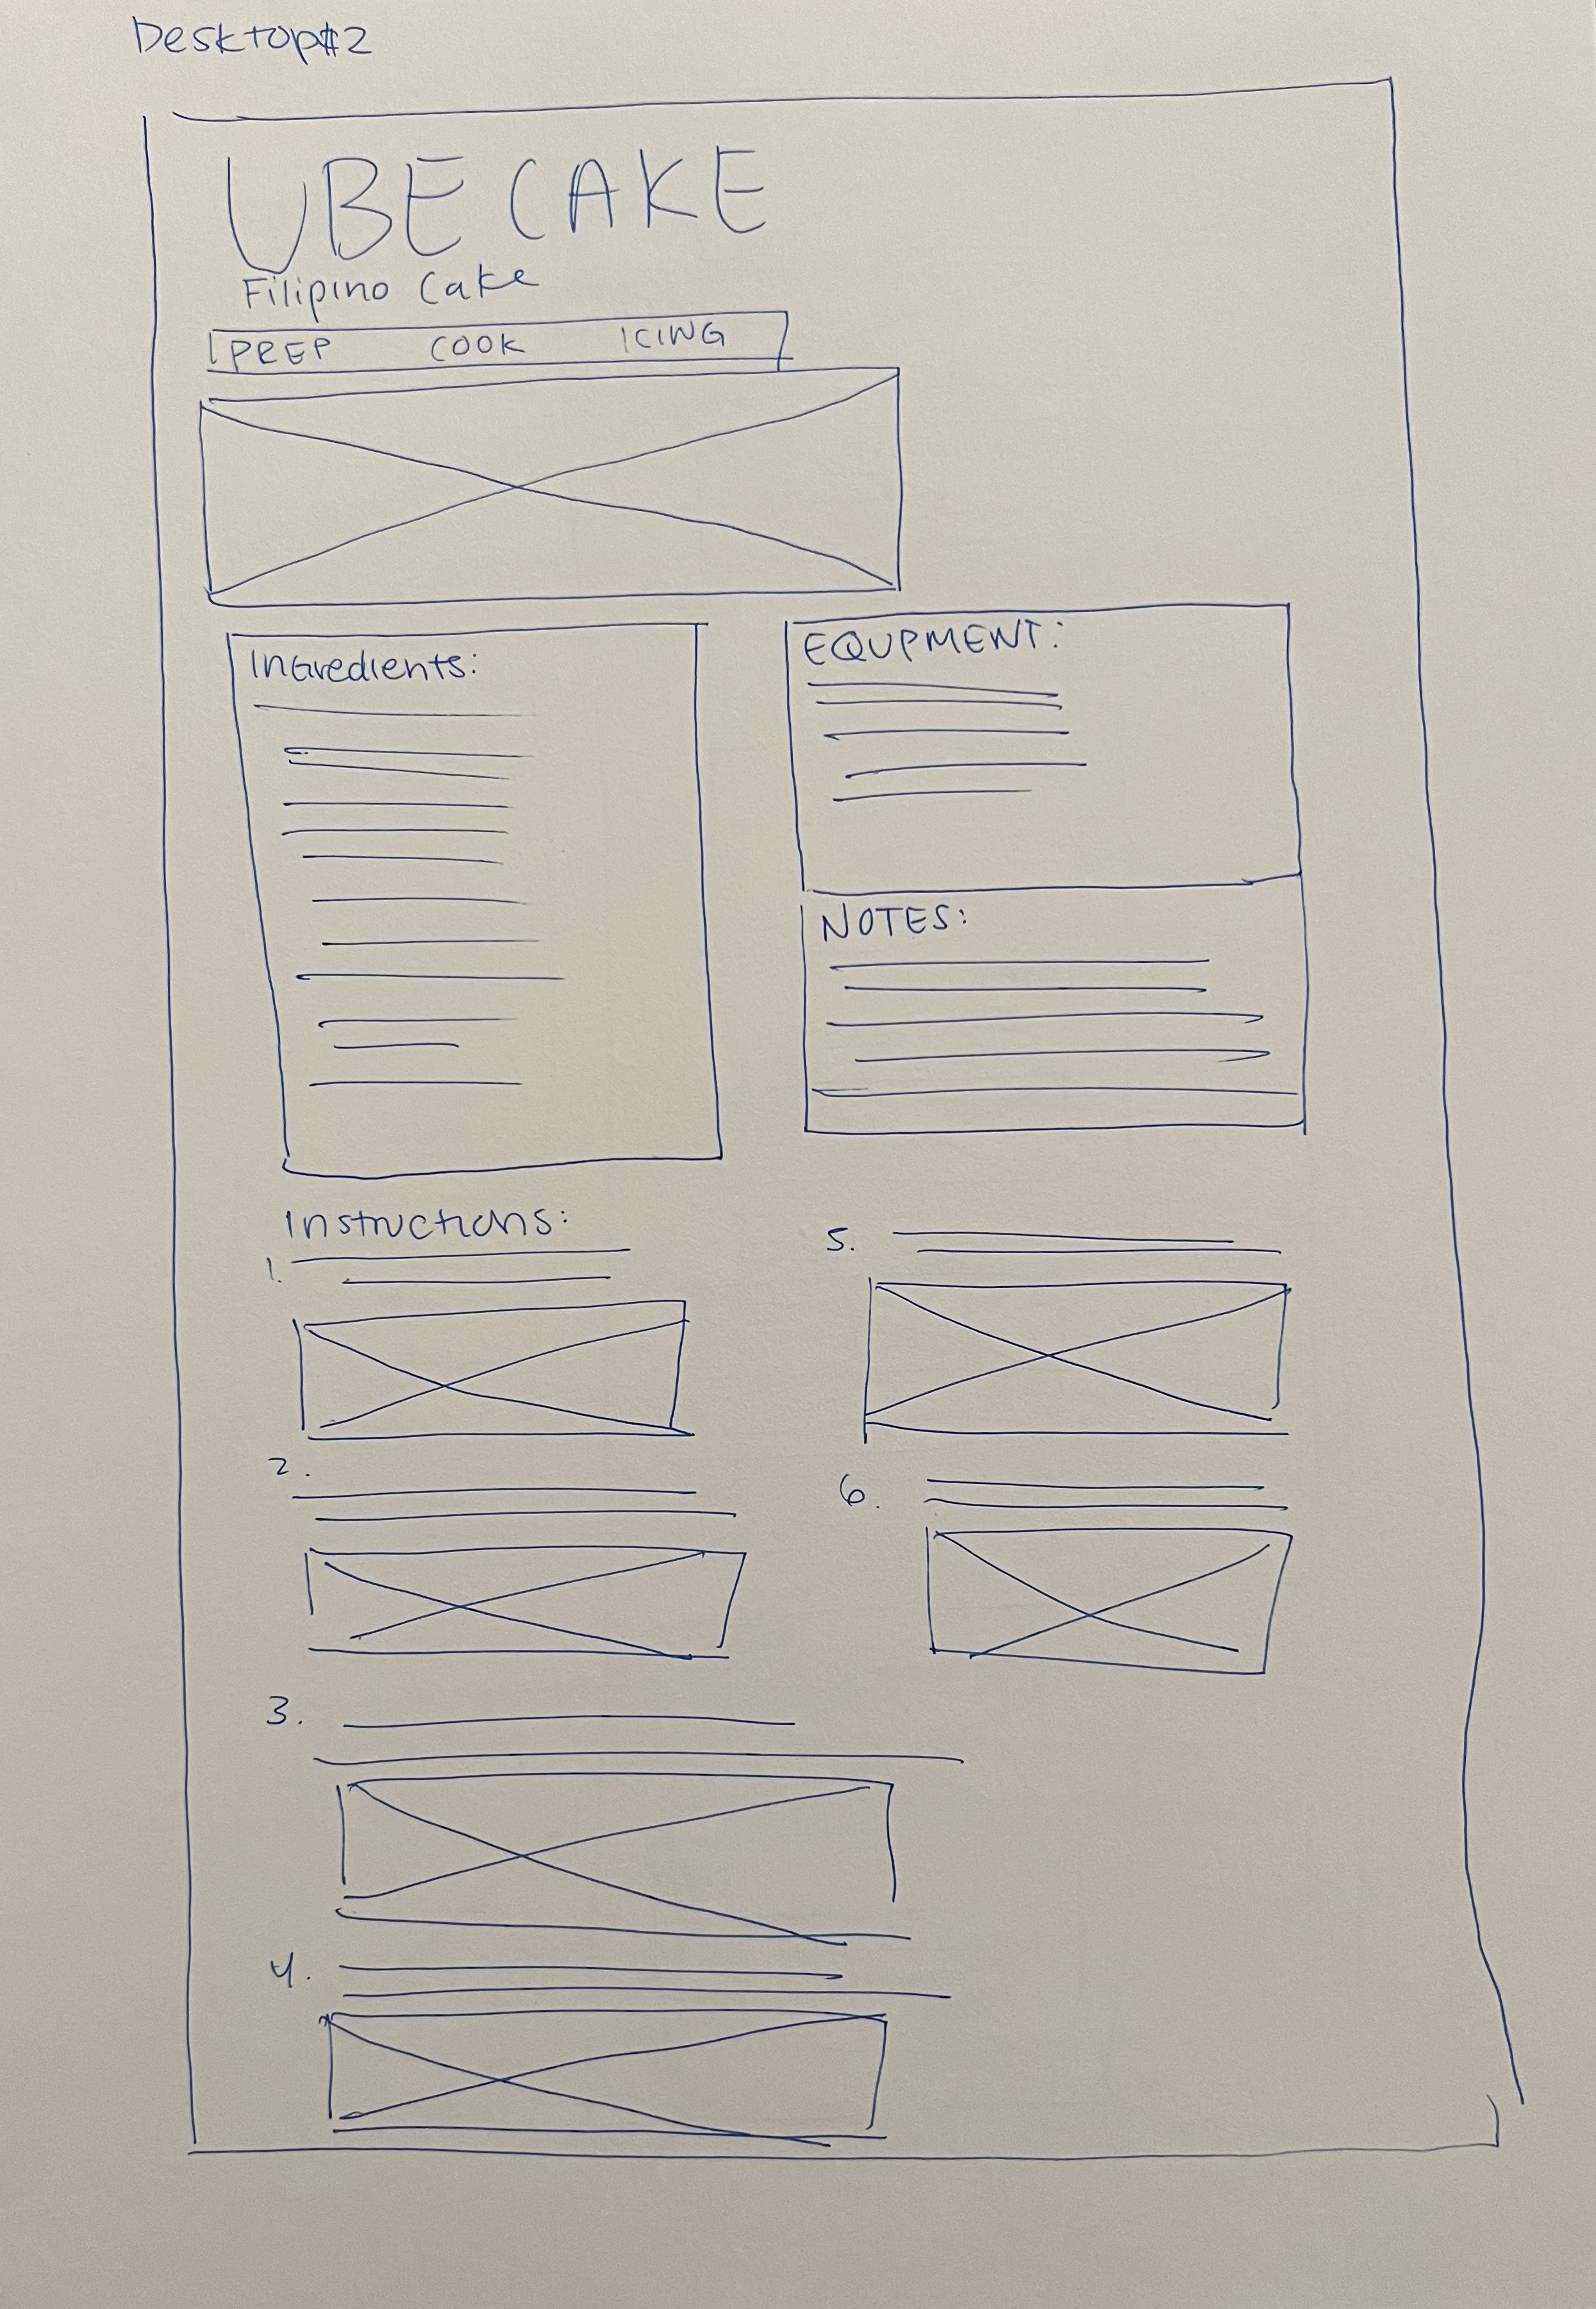 Desktop#2
UBE CAKE
Filipino Cake
PREP COOK ICING
Ingredients:
EQUPMENT:
NOTES:
Instructions:
1.
2.
3.
4.
5.
6.